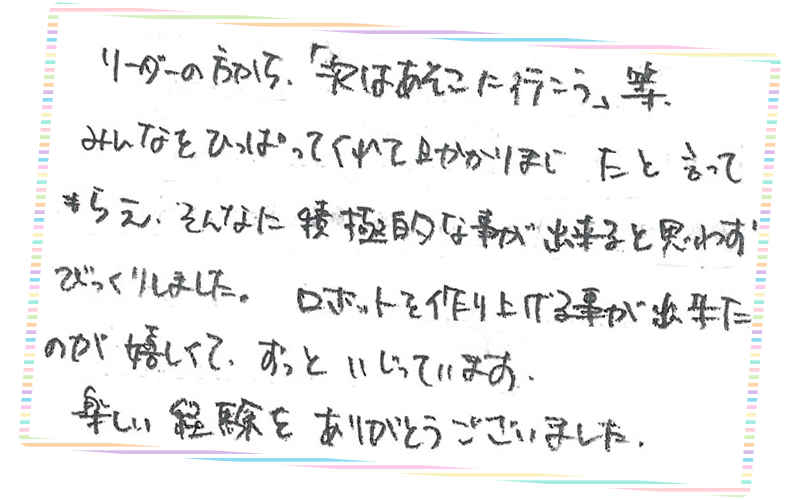 リーダーの方から、「次はあそこに行こう」等、
みんなをひっぱってくれて助かりました と言って
もらえ、そんなに積極的な事が出来ると思わず
びっくりしました。 ロボットを作り上げる事が出来た
のが嬉しくて、ずっといじっています。
楽しい経験をありがとうございました。